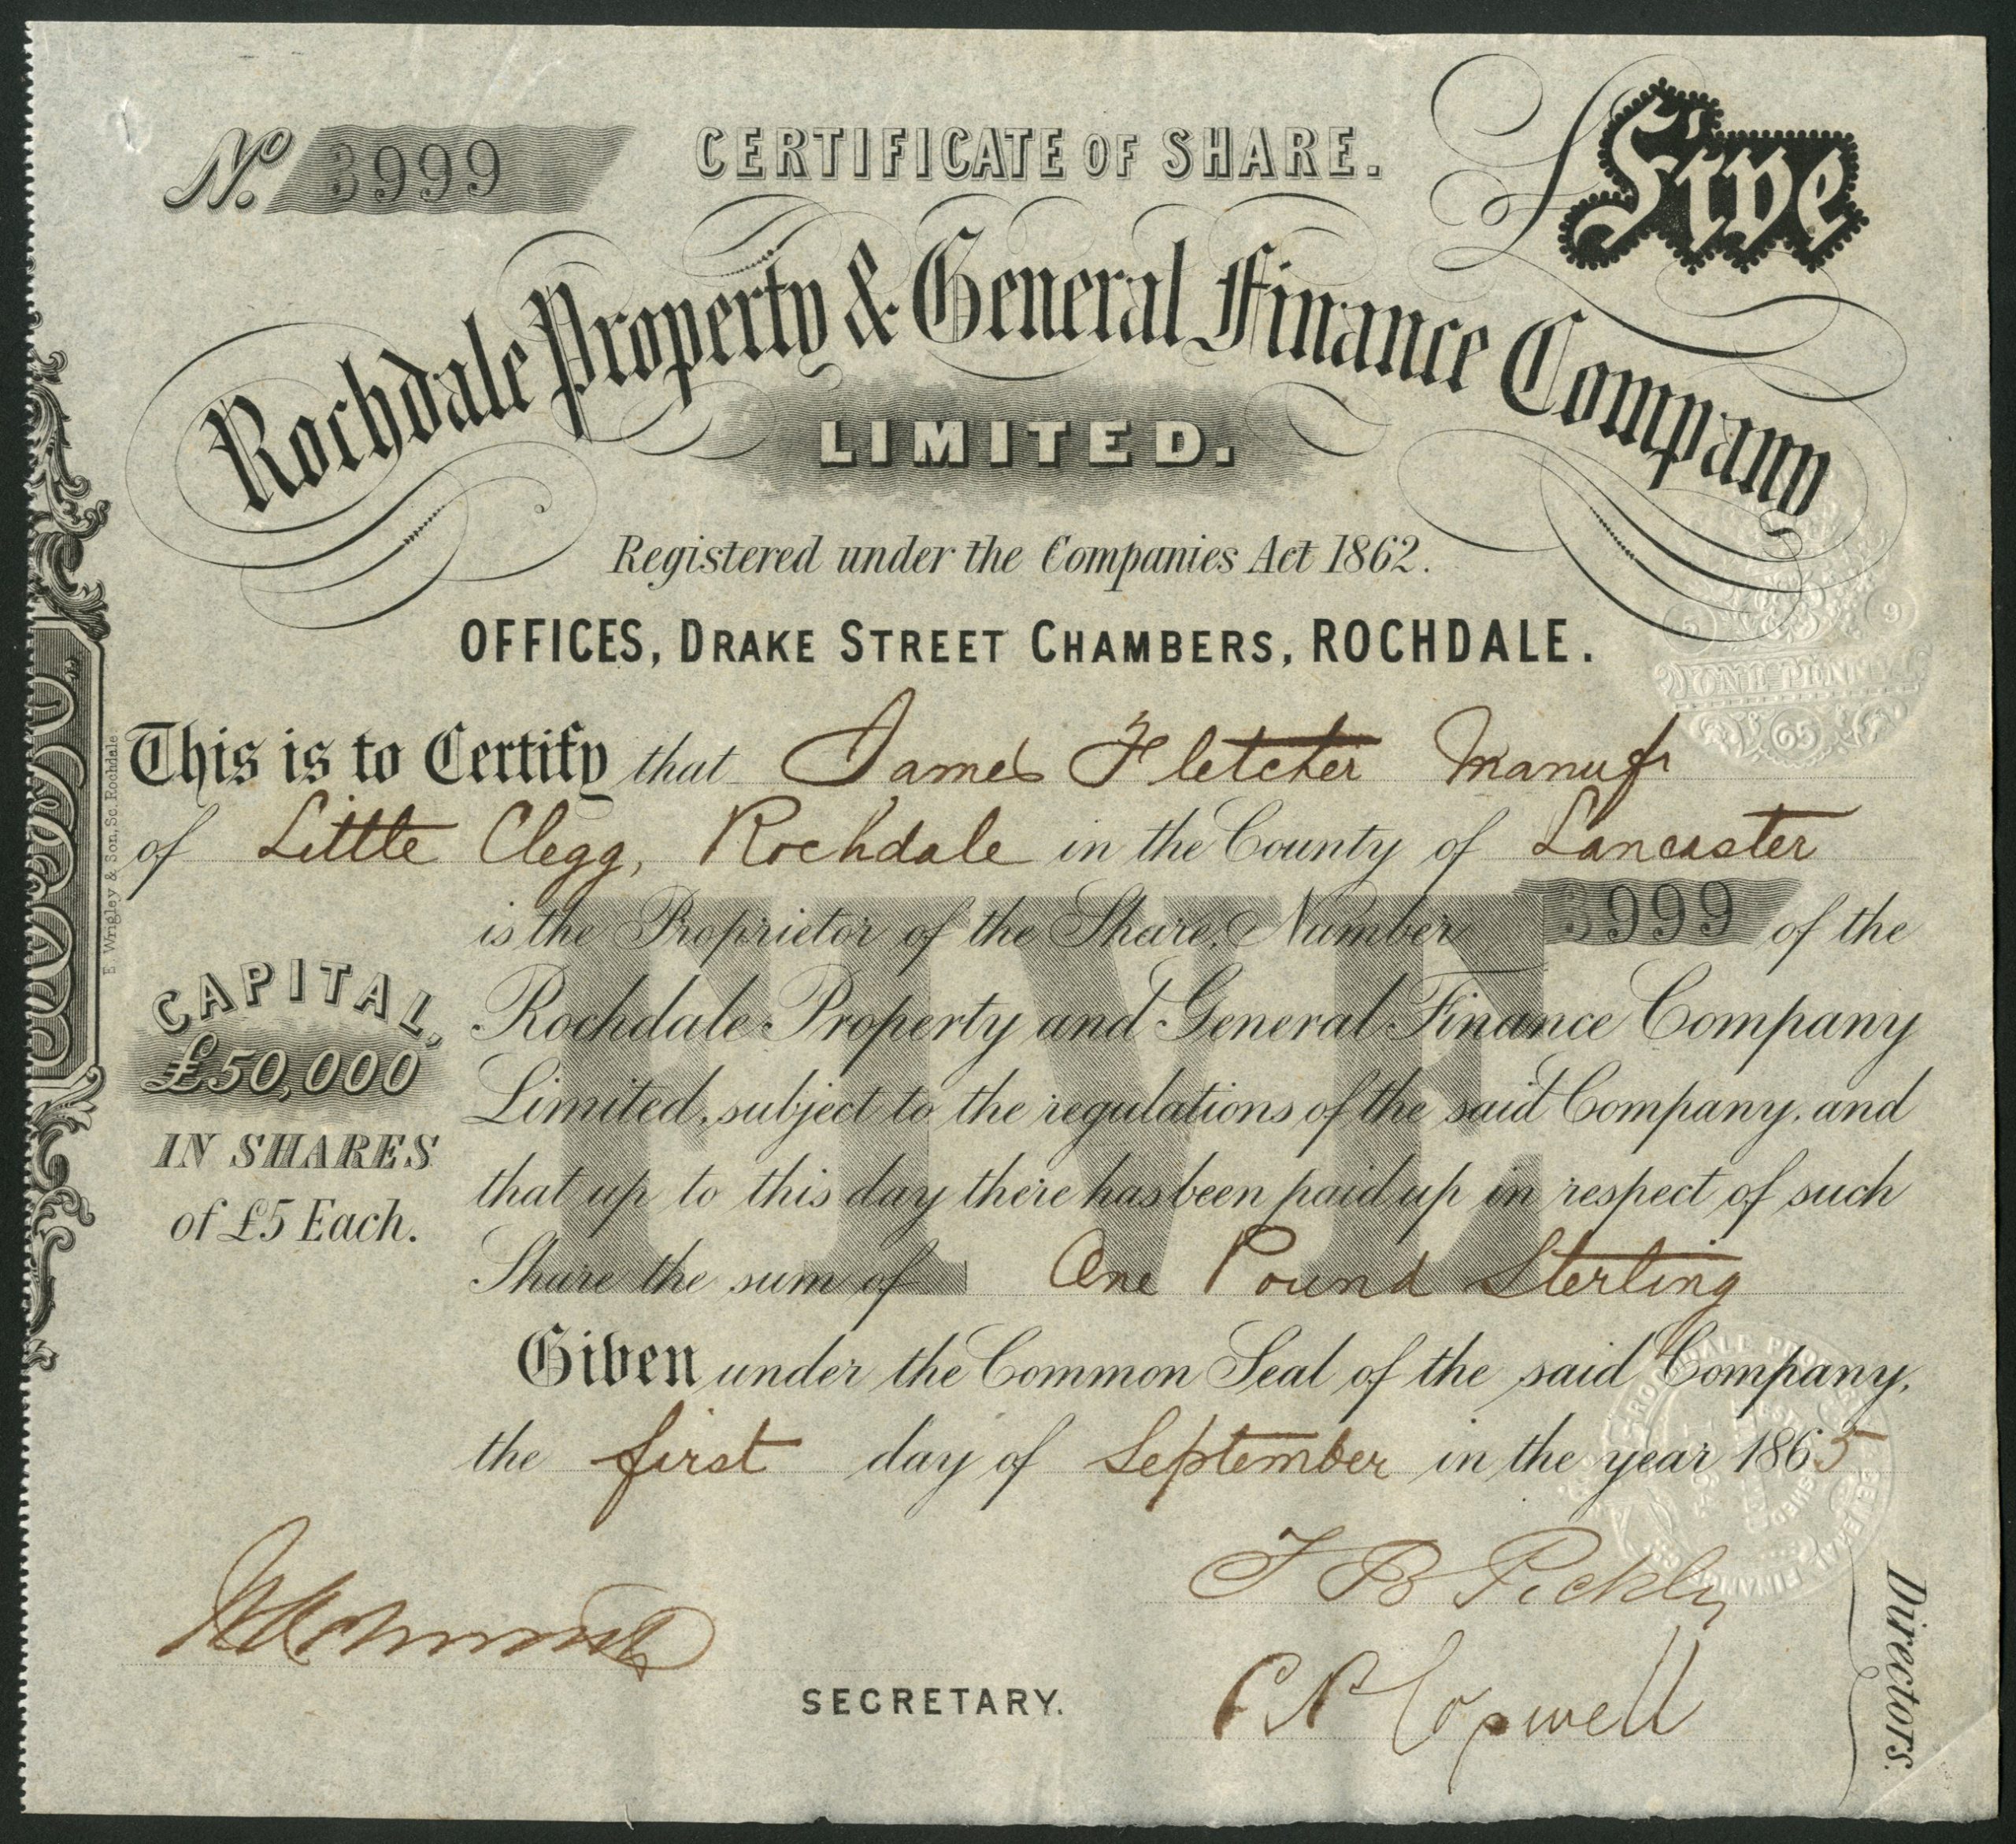 No. 3999
CERTIFICATE OF SHARE.
£ Five
Rochdale Property & General Finance Company
LIMITED.
Registered under the Companies Act 1862.
OFFICES, DRAKE STREET CHAMBERS, ROCHDALE.
ONE PENNY
9
65
This is to Certify that James Fletcher Manufr
of Little Clegg, Rochdale in the County of Lancaster
is the Proprietor of the Share, Number 3999 of the
Rochdale Property and General Finance Company
Limited, subject to the regulations of the said Company, and
that up to this day there has been paid up in respect of such
Share the sum of One Pound Sterling
FIVE
CAPITAL,
£50,000
IN SHARES
of £5 Each.
E. Wrigley & Son, Sc. Rochdale
Given under the Common Seal of the said Company,
the first day of September in the year 1865
T B Pickly
Copwell
SECRETARY.
Directors.